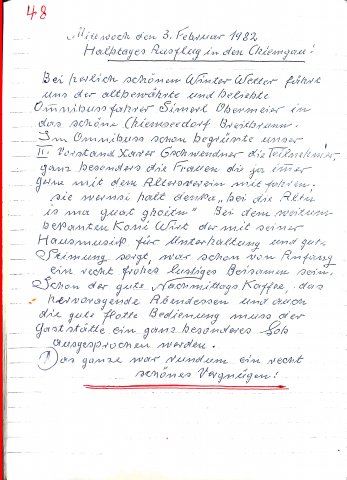 48
Mittwoch den 3. Februar 1982
Halbtages Ausflug in den Chiemgau!
Bei herlich schönen Winter Wetter fährt
uns der altbewährte und beliebte
Omnibussfahrer Simerl Obermeier in
das schöne Chiemseedorf Breitbrunn.
Im Omnibuss schon begrüsste unser
II. Vorstand Xaver Gschwendner die Teilnehmer
ganz besonders die Frauen die ja imer
gerne mit dem Altersverein mit fahren.
sie wernsi halt denka „bei die Alten
is ma guat ghalten" Bei dem weitum
bekannten Koni Wirt der mit seiner
Hausmusik für Unterhaltung und gute
Stimung sorgt, war schon von Anfang
ein recht frohes lustiges Beisamen sein.
Schon der gute Nachmittags Kaffee, das
hervoragende Abendessen und auch
die gute flotte Bedienung muss der
Gaststätte ein ganz besonderes Lob
ausgesprochen werden.
Das ganze war rundum ein recht
schönes Vergnügen!